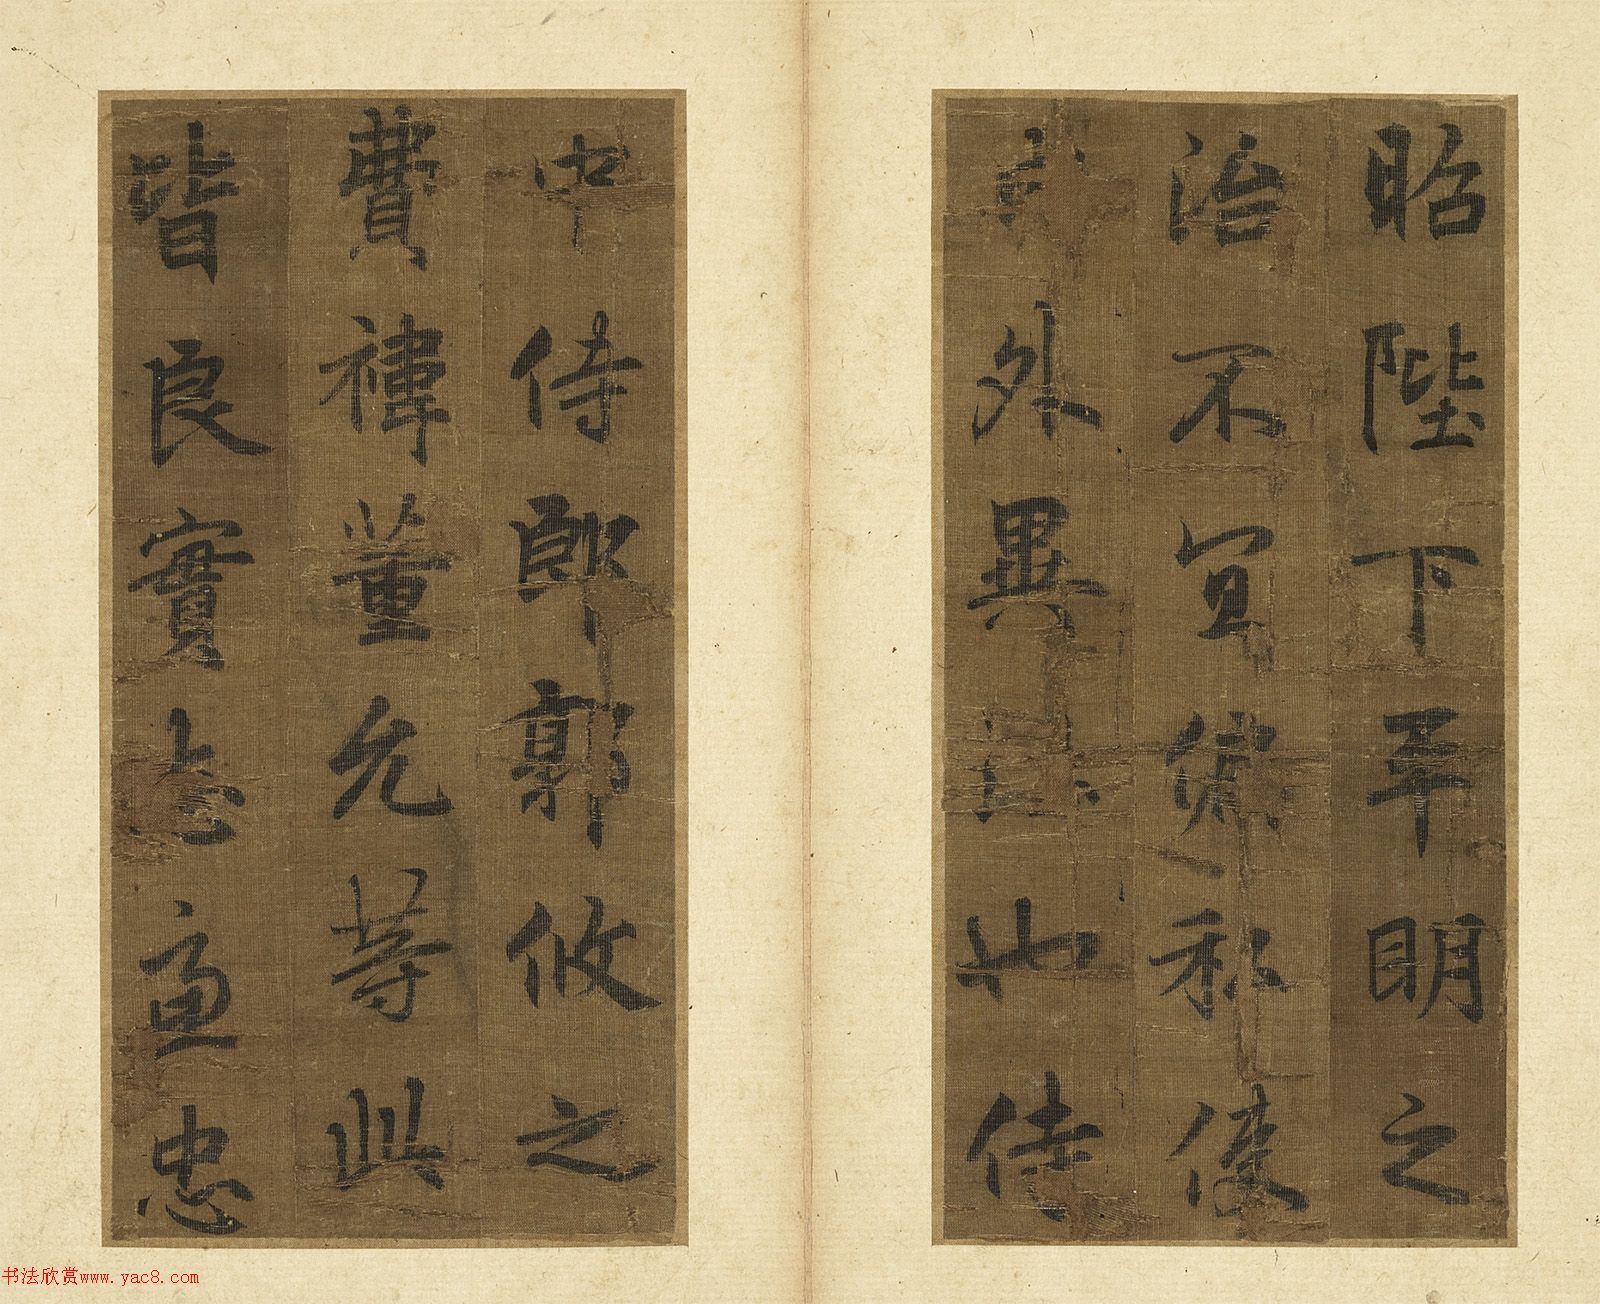 昭陛下平明之
治不宜偏私使
外異也侍
中侍郎郭攸之
費禕董允等此
皆良實志慮忠
书法欣赏www.yac8.com